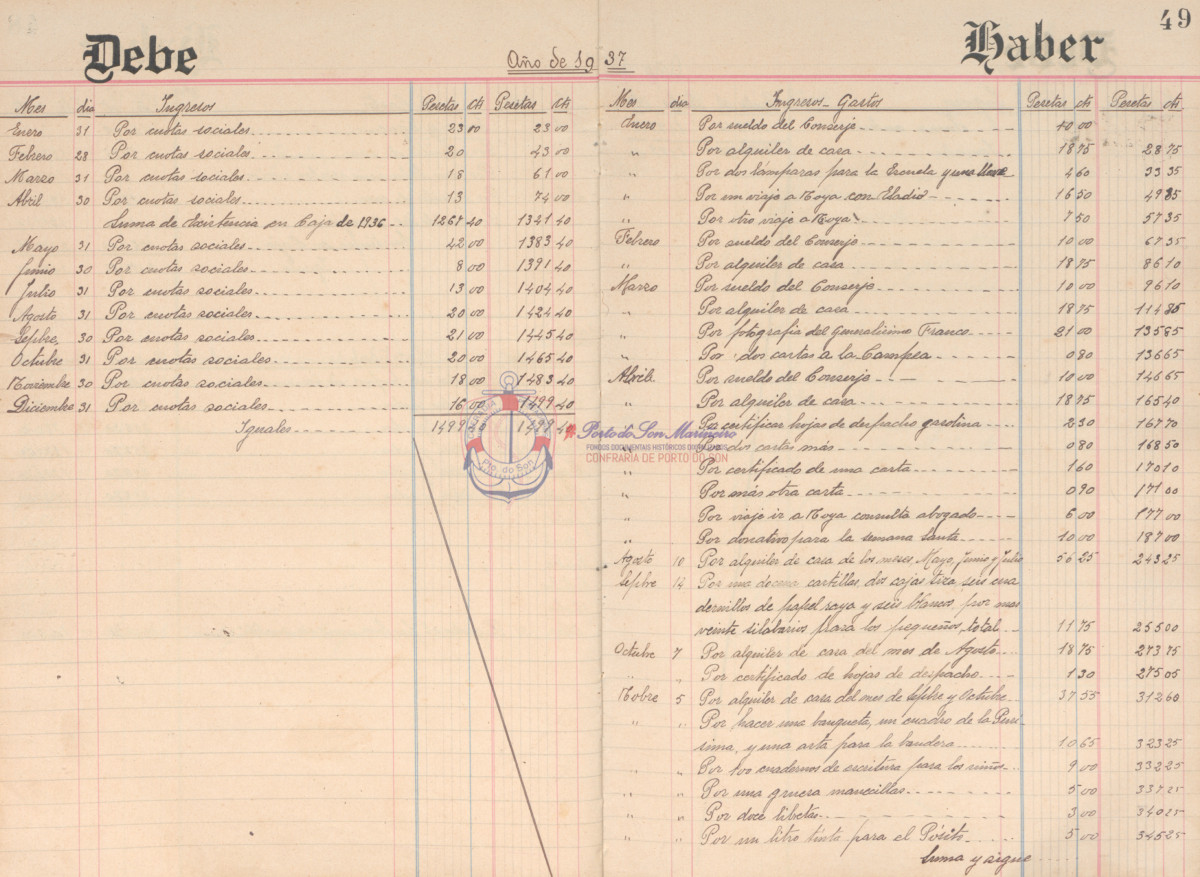 49
Debe
Haber
Año de 1937
Mes día Ingresos Pesetas cts Pesetas cts
Enero 31 Por cuotas sociales 23 00 23 00
Febrero 28 Por cuotas sociales 20 43 00
Marzo 31 Por cuotas sociales 18 61 00
Abril 30 Por cuotas sociales 13 74 00
Suma de existencia en Caja de 1936 1267 40 1341 40
Mayo 31 Por cuotas sociales 42 00 1383 40
Junio 30 Por cuotas sociales 8 00 1391 40
Julio 31 Por cuotas sociales 13 00 1404 40
Agosto 31 Por cuotas sociales 20 00 1424 40
Sepbre, 30 Por cuotas sociales 21 00 1445 40
Octubre 31 Por cuotas sociales 20 00 1465 40
Noviembre 30 Por cuotas sociales 18 00 1483 40
Diciembre 31 Por cuotas sociales 16 00 1499 40
Iguales 1499 40 1499 40
Mes día Ingresos - Gastos Pesetas cts Pesetas cts
Enero Por sueldo del Conserje 10 00
" Por alquiler de casa 18 75 28 75
" Por dos lámparas para la Escuela y una llave 4 60 33 35
" Por un viaje a Noya con Eladio 16 50 49 85
" Por otro viaje a Noya 7 50 57 35
Febrero Por sueldo del Conserje 10 00 67 35
" Por alquiler de casa 18 75 86 10
Marzo Por sueldo del Conserje 10 00 96 10
" Por alquiler de casa 18 75 114 85
" Por fotografía del Generalísimo Franco 21 00 135 85
" Por dos cartas a la Campsa 0 80 136 65
Abril Por sueldo del Conserje 10 00 146 65
" Por alquiler de casa 18 75 165 40
Por certificar hojas de despacho gasolina 2 30 167 70
Por dos cartas más 0 80 168 50
" Por certificado de una carta 1 60 170 10
" Por más otra carta 0 90 171 00
" Por viaje ir a Noya consulta abogado 6 00 177 00
" Por donativo para la semana santa 10 00 187 00
Agosto 10 Por alquiler de casa de los meses, Mayo, Junio y Julio 56 25 243 25
Sepbre 14 Por una decena cartillas, dos cajas tiza, seis cua
dernillos de papel raya y seis blancos, por mas
veinte silabarios para los pequeños, total 11 75 255 00
Octubre 7 Por alquiler de casa del mes de Agosto 18 75 273 75
" " Por certificado de hojas de despacho 1 30 275 05
Nobre 5 Por alquiler de casa del mes de Sepbre y Octubre 37 55 312 60
" " Por hacer una banqueta, un cuadro de la Purí-
sima, y una asta para la bandera 10 65 323 25
" " Por 100 cuadernos de escritura para los niños 9 00 332 25
" " Por una gruesa manecillas 5 00 337 25
" " Por doce libetas 3 00 340 25
" " Por un litro tinta para el Pósito 5 00 345 25
Suma y sigue
Porto do Son Mariñeiro
FONDOS DOCUMENTAIS HISTÓRICOS DIGITALIZADOS
CONFRARÍA DE PORTO DO SON
Pto. do Son